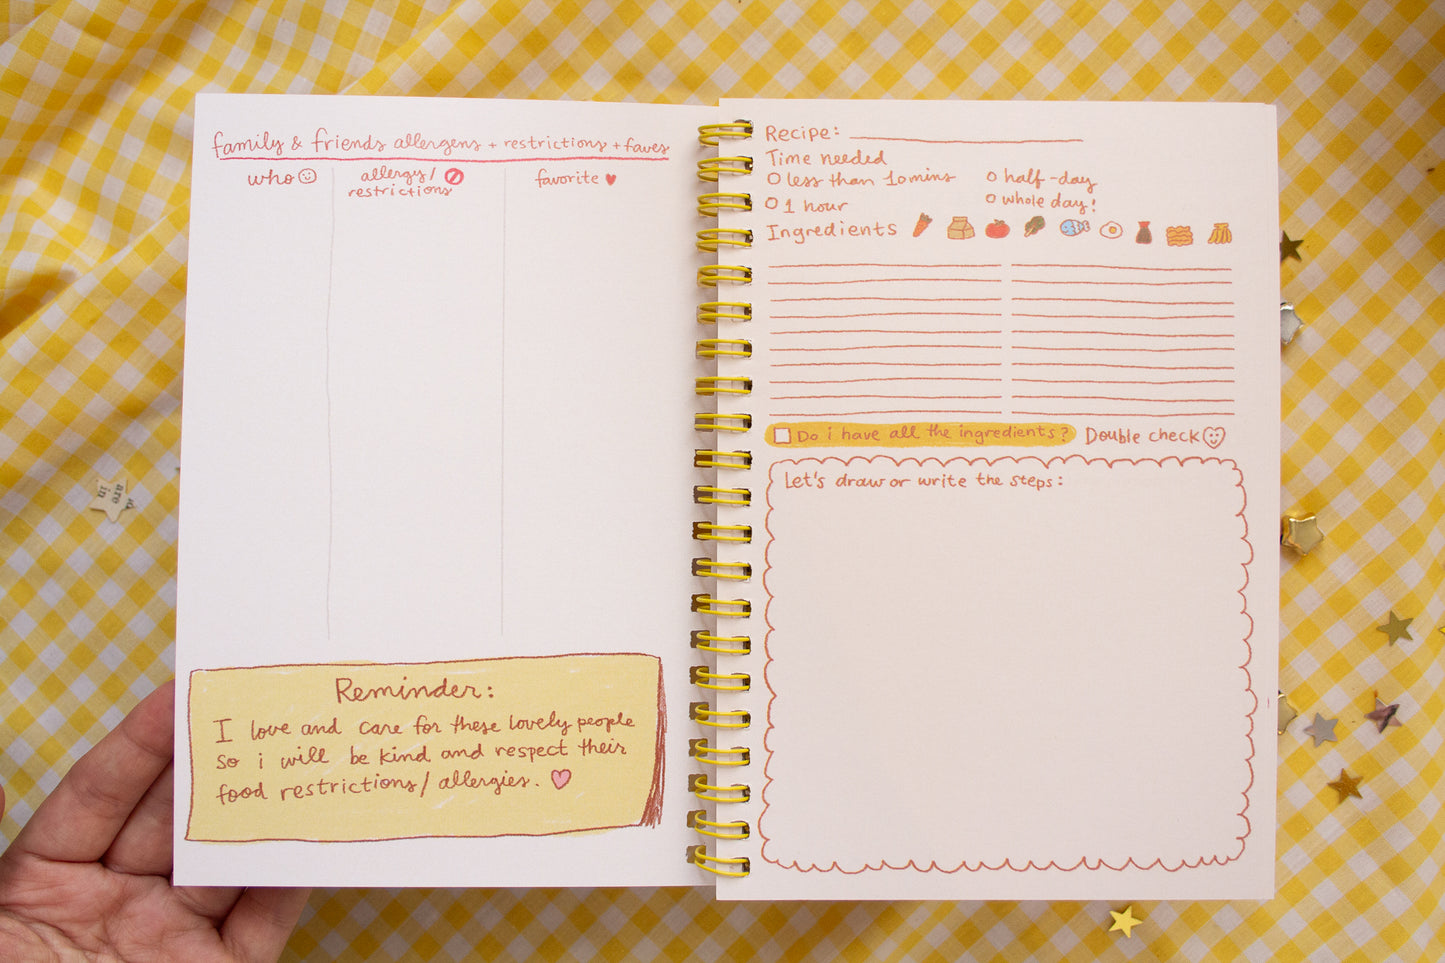 family & friends allergens + restrictions + faves
who
allergy/
restrictions
favorite
Reminder:
I love and care for these lovely people
so i will be kind and respect their
food restrictions/ allergies.
Recipe:
Time needed
less than 10mins
half-day
1 hour
whole day!
Ingredients
Do i have all the ingredients?
Double check
Let's draw or write the steps:
are
in